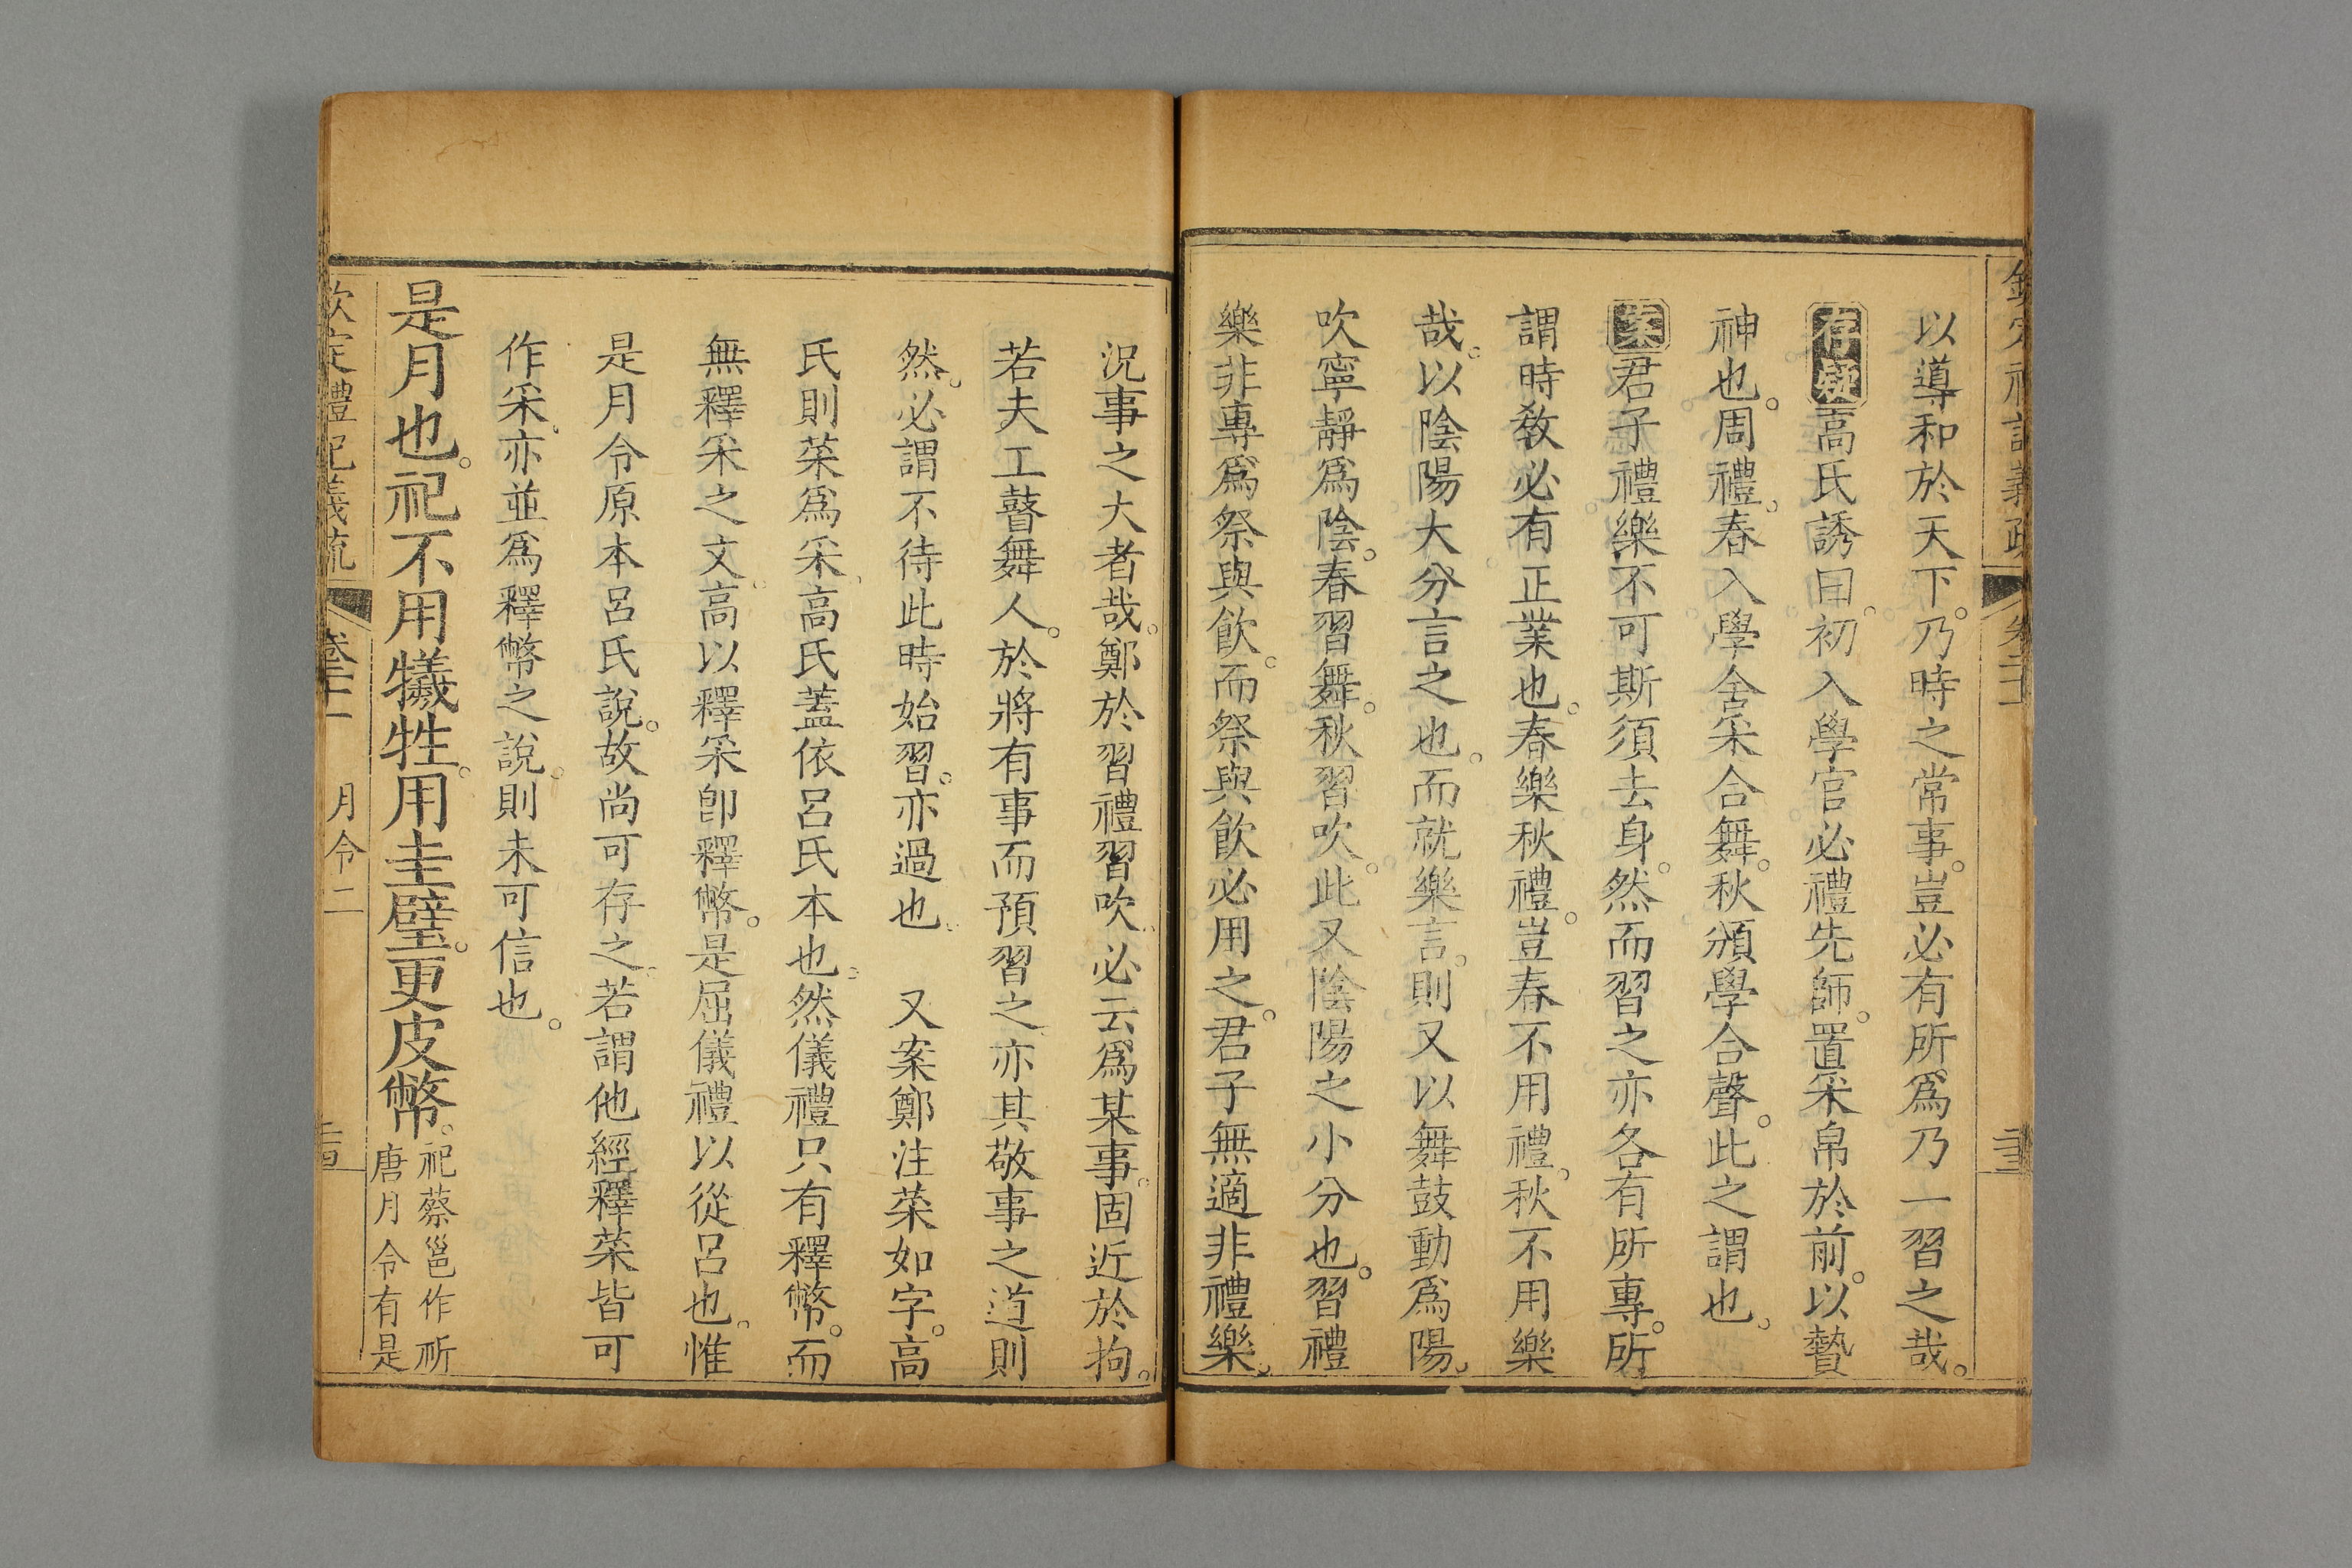 欽定禮記義疏 卷二十一 三十三
以導和於天下。乃時之常事。豈必有所爲乃一習之哉。
存疑高氏誘曰。初入學官必禮先師。置采帛於前。以贄
神也。周禮。春入學舍采合舞。秋頒學合聲。此之謂也。
案君子禮樂不可斯須去身。然而習之亦各有所專。所
謂時敎必有正業也。春樂秋禮。豈春不用禮。秋不用樂
哉。以陰陽大分言之也。而就樂言。則又以舞鼓動爲陽。
吹寧靜爲陰。春習舞。秋習吹。此又陰陽之小分也。習禮
樂非專爲祭與飮。而祭與飮必用之。君子無適非禮樂。
況事之大者哉。鄭於習禮習吹。必云爲某事。固近於拘。
若夫工瞽舞人。於將有事而預習之。亦其敬事之道則
然。必謂不待此時始習。亦過也。 又案鄭注菜如字。高
氏則菜爲采。高氏蓋依呂氏本也。然儀禮只有釋幣。而
無釋采之文。高以釋采卽釋幣。是屈儀禮以從呂也。惟
是月令原本呂氏說。故尚可存之。若謂他經釋菜皆可
作采。亦並爲釋幣之說。則未可信也。
是月也。祀不用犧牲。用圭璧。更皮幣。祀蔡邕作祈
唐月令有是
欽定禮記義疏 卷二十一 月令二 三十四